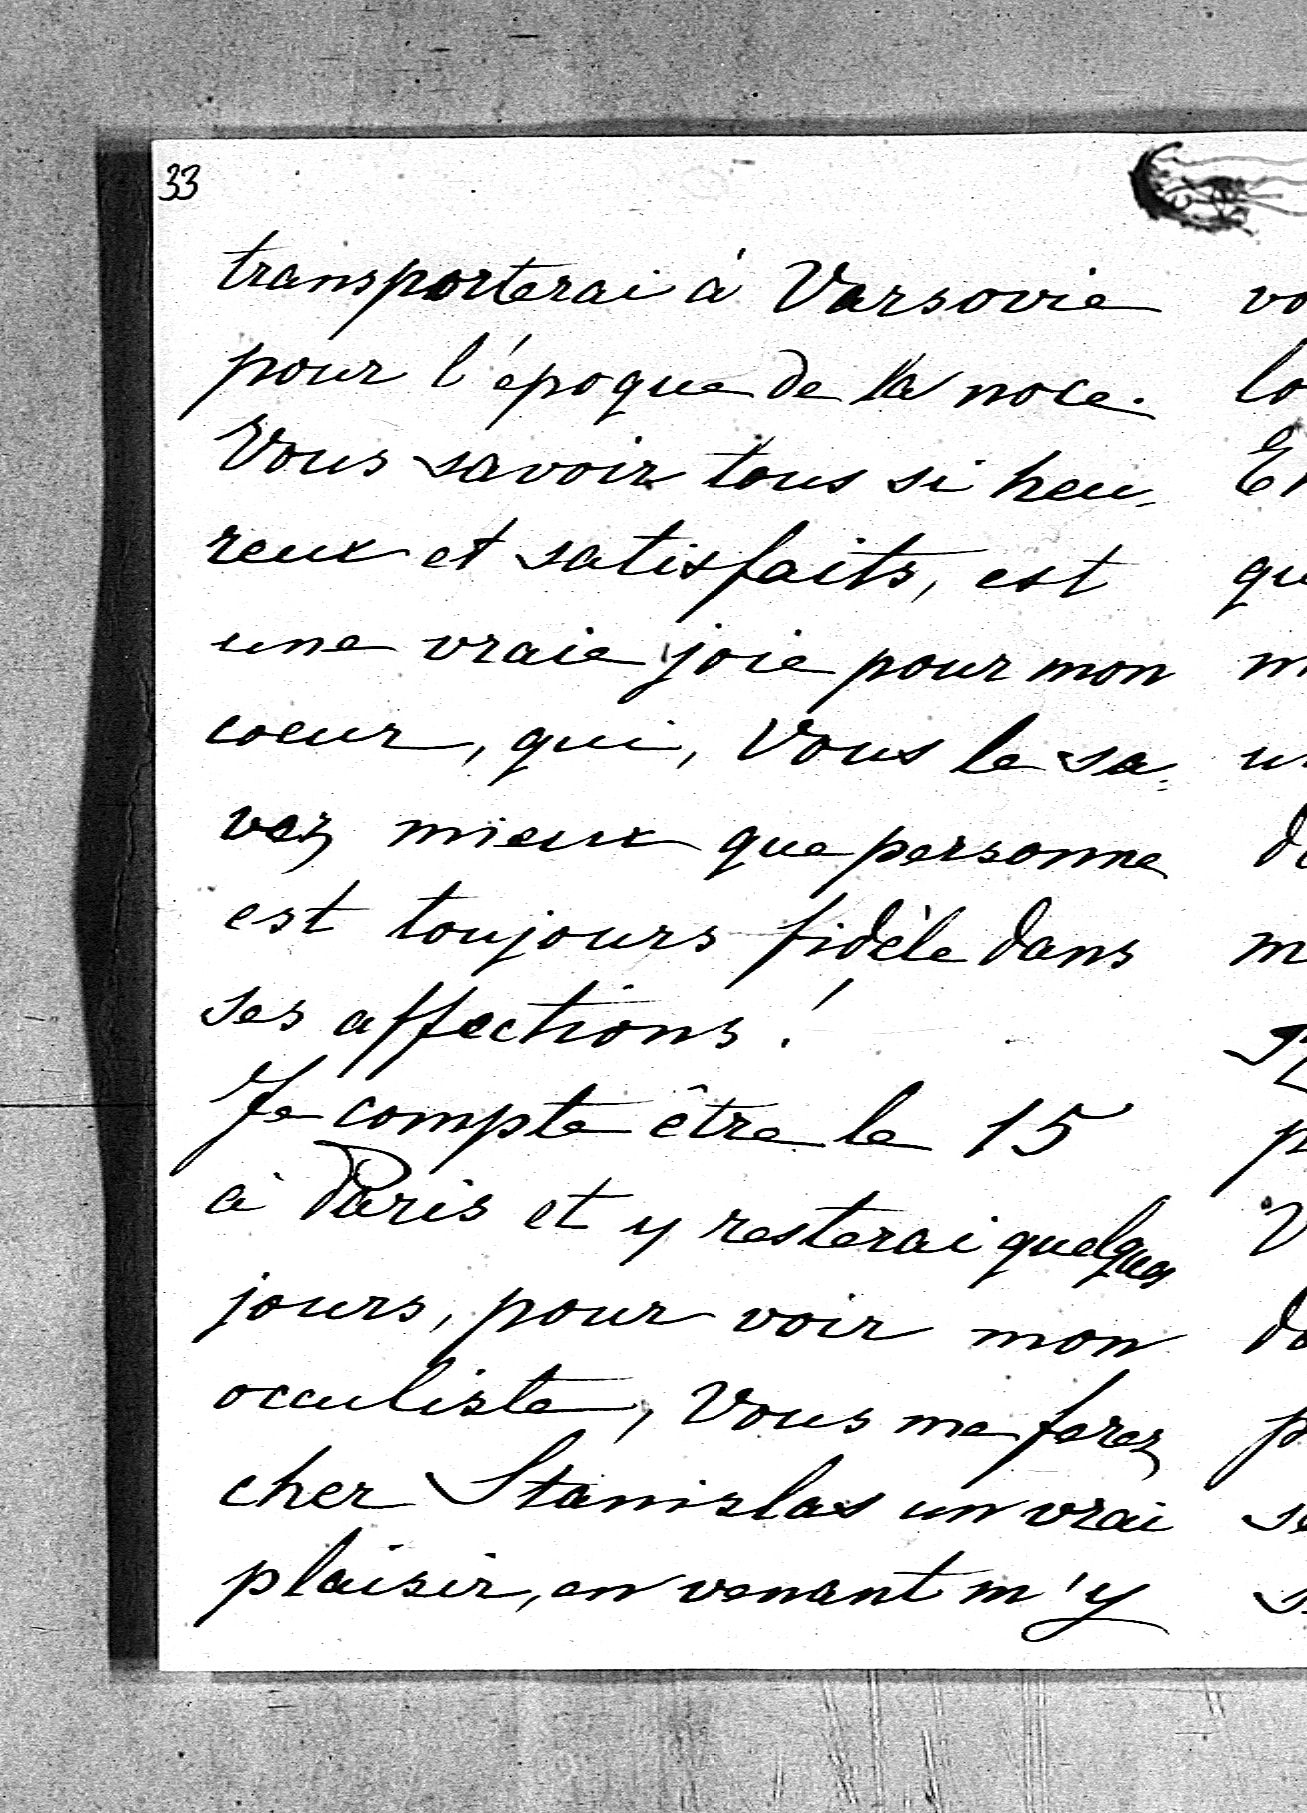 33
transporterai à Varsovie
pour l'époque de la noce.
Vous savoir tous si heu-
reux et satisfaits, est
une vraie joie pour mon
coeur, qui, Vous le sa-
vez mieux que personne
est toujours fidèle dans
ses affections!
Je compte être le 15
à Paris et y resterai quelques
jours, pour voir mon
occuliste, Vous me ferez
cher Stanislas un vrai
plaisir, en venant m'y